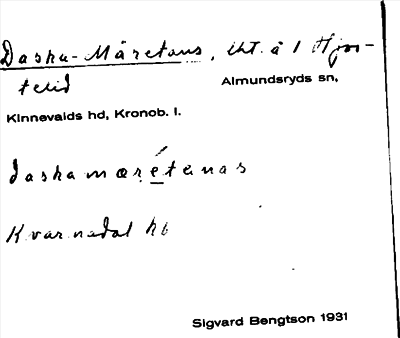 Daska-Märetans, lht. å 1 Hjor-
telid
Almundsryds sn,
Kinnevalds hd, Kronob. l.
daskamærétanas
Kvarnadal hb
Sigvard Bengtson 1931